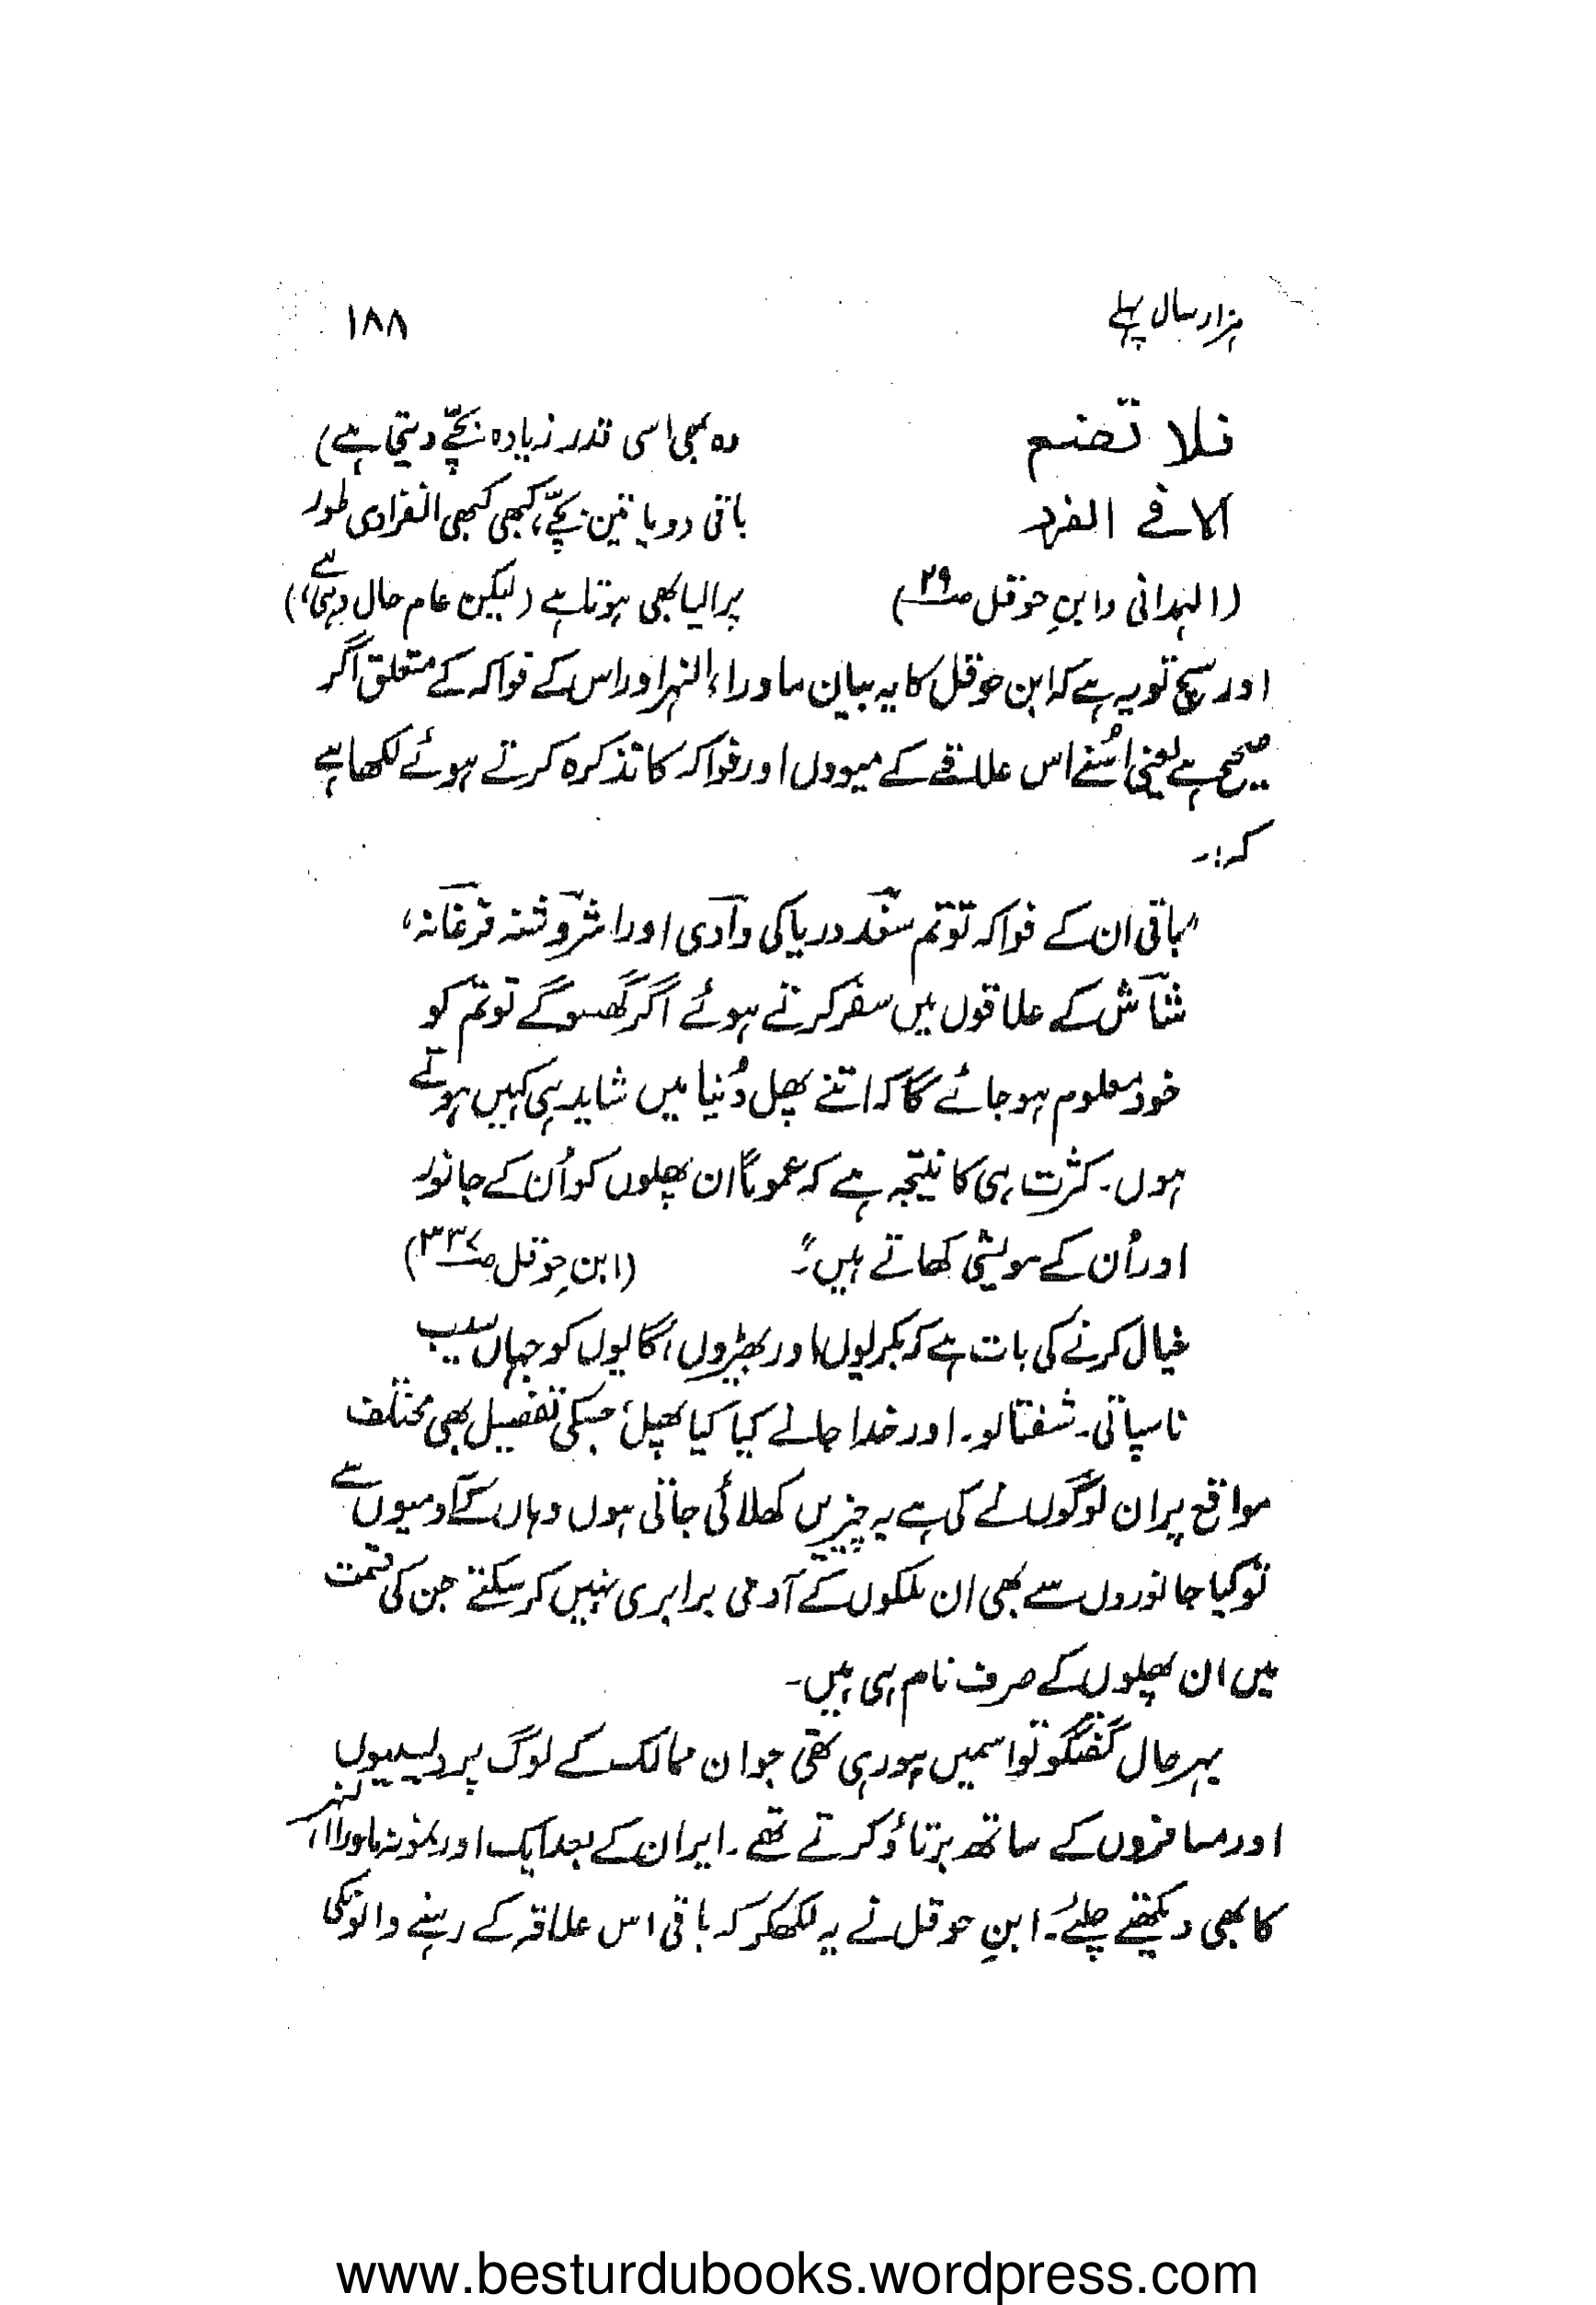 ہزار سال پہلے ۱۸۸
فلا تضع وہ بھی اسی قدر زیادہ بچّے دیتی ہے)
الا فی الفرد باقی دو یا تین بچّے، کبھی کبھی انفرادی طور
(الہمدانی و ابنِ حوقل ص۲۹) پر ایسا بھی ہوتا ہے (لیکن عام حال وہی ہے،)
اور سچ تو یہ ہے کہ ابن حوقل کا یہ بیان ماوراء النہر اور اس کے فواکہ کے متعلق اگر
صحیح ہے یعنی اُسنے اس علاقے کے میووں اور فواکہ کا تذکرہ کرتے ہوئے لکھا ہے
کہ:۔
"باقی ان کے فواکہ تو تم سغد دریا کی وادی اور اشروشنہ فرغانہ،
شاش کے علاقوں میں سفر کرتے ہوئے اگر گھسو گے تو تم کو
خود معلوم ہو جائے گا کہ اتنے پھل دُنیا میں شاید ہی کہیں ہوتے
ہوں۔ کثرت ہی کا نیتجہ ہے کہ عموماً ان پھلوں کو اُن کے جانور
اور اُن کے مویشی کھاتے ہیں۔" (ابنِ حوقل ص۳۳۷)
خیال کرنے کی بات ہے کہ بکریوں اور بھیڑوں، گایوں کو جہاں سیب
ناسپاتی۔ شفتالو۔ اور خدا جانے کیا کیا پھل، جسکی تفصیل بھی مختلف
مواقع پر ان لوگوں نے کی ہے یہ چیزیں کھلائی جاتی ہوں وہاں کے آدمیوں سے
تو کیا جانوروں سے بھی ان ملکوں کے آدمی برابری نہیں کر سکتے جن کی قسمت
میں ان پھلوں کے صرف نام ہی ہیں۔
بہرحال گفتگو تو اسمیں ہورہی تھی جو ان ممالک کے لوگ پردیسیوں
اور مسافروں کے ساتھ برتاؤ کرتے تھے۔ ایران کے بعد ایک اور نمونہ ماوراء النہر
کا بھی دیکھتے چلئے۔ ابنِ حوقل نے یہ لکھکر کہ باقی اس علاقہ کے رہنے والونکی
www.besturdubooks.wordpress.com